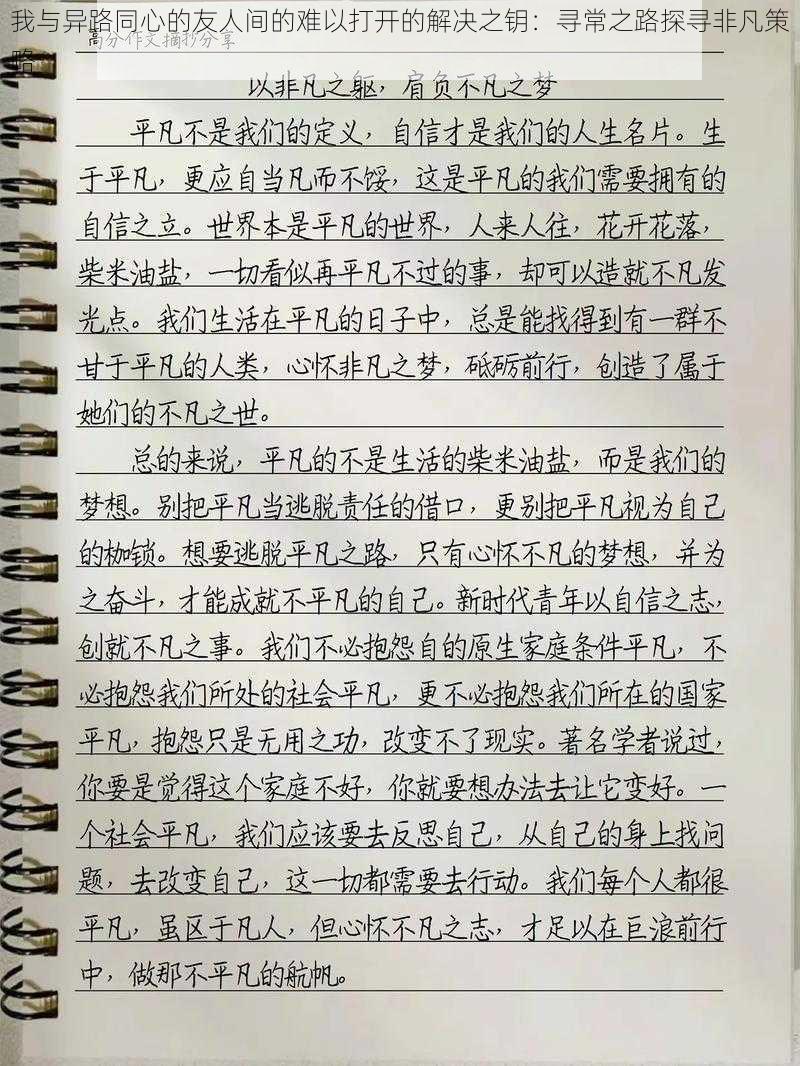 我与异路同心的友人间的难以打开的解决之钥：寻常之路探寻非凡策
略
高分作文摘抄分享
以非凡之躯，肩负不凡之梦
平凡不是我们的定义，自信才是我们的人生名片。生
于平凡，更应自当凡而不馁，这是平凡的我们需要拥有的
自信之立。世界本是平凡的世界，人来人往，花开花落，
柴米油盐，一切看似再平凡不过的事，却可以造就不凡发
光点。我们生活在平凡的日子中，总是能找得到有一群不
甘于平凡的人类，心怀非凡之梦，砥砺前行，创造了属于
她们的不凡之世。
总的来说，平凡的不是生活的柴米油盐，而是我们的
梦想。别把平凡当逃脱责任的借口，更别把平凡视为自己
的枷锁。想要逃脱平凡之路，只有心怀不凡的梦想，并为
之奋斗，才能成就不平凡的自己。新时代青年以自信之志，
创就不凡之事。我们不必抱怨自的原生家庭条件平凡，不
必抱怨我们所处的社会平凡，更不必抱怨我们所在的国家
平凡，抱怨只是无用之功，改变不了现实。著名学者说过，
你要是觉得这个家庭不好，你就要想办法去让它变好。一
个社会平凡，我们应该要去反思自己，从自己的身上找问
题，去改变自己，这一切都需要去行动。我们每个人都很
平凡，虽区于凡人，但心怀不凡之志，才足以在巨浪前行
中，做那不平凡的航帆。